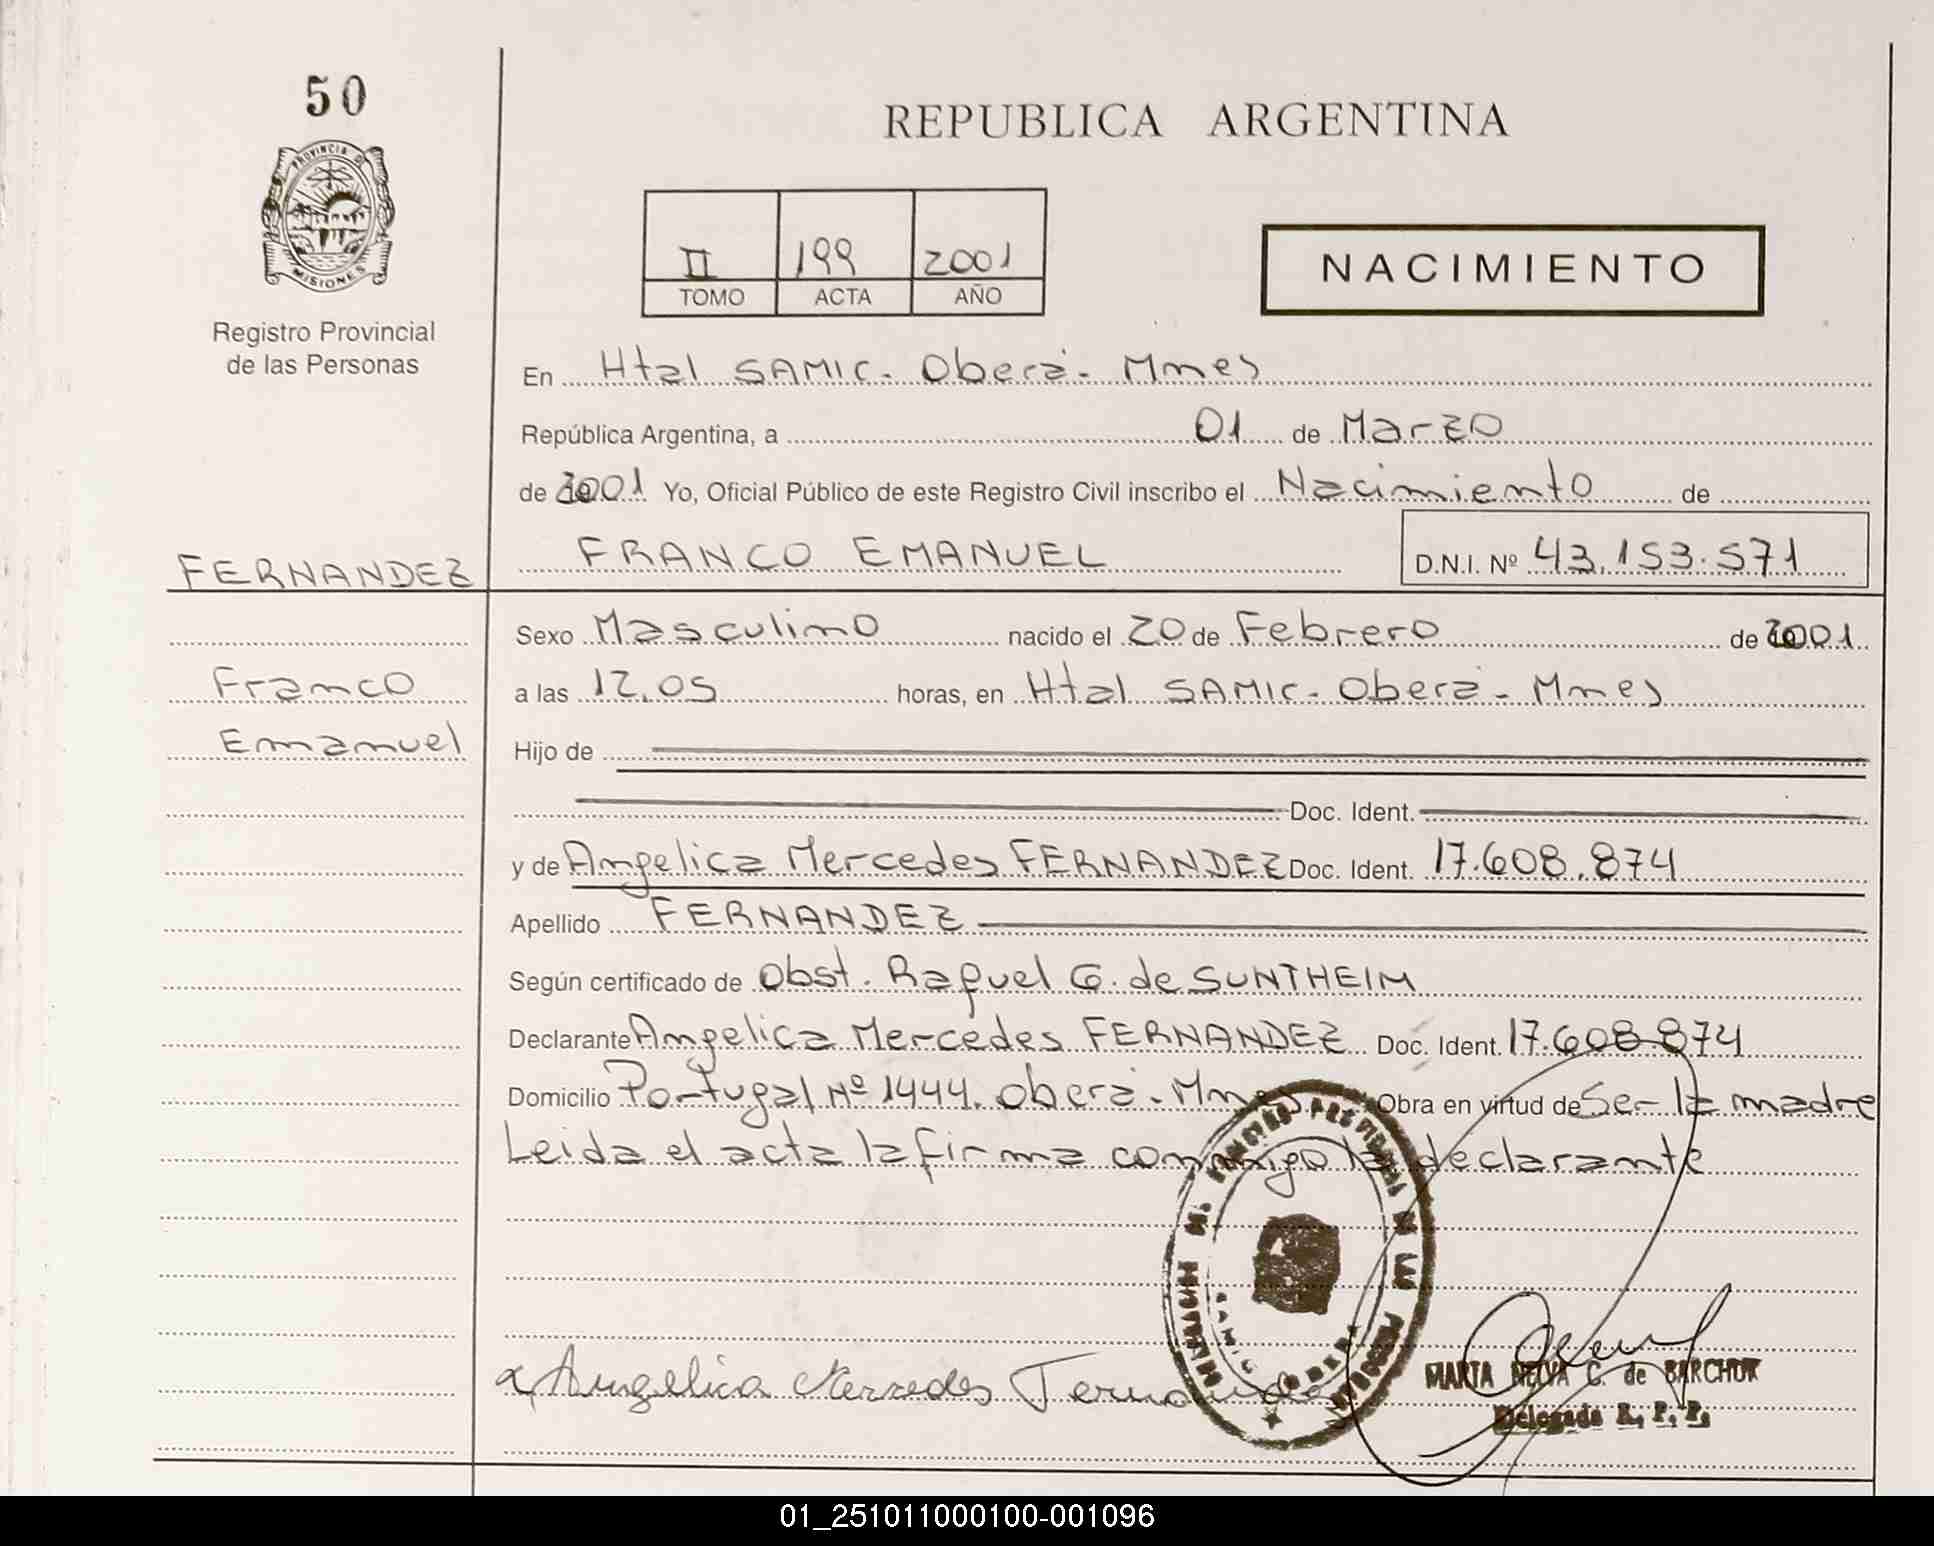 50
REPUBLICA ARGENTINA
PROVINCIA D
MISIONES
Registro Provincial
de las Personas
II 199 2001
TOMO ACTA AÑO
NACIMIENTO
En Htal SAMIC - Oberá - Mnes
República Argentina, a 01 de Marzo
de 2001 Yo, Oficial Público de este Registro Civil inscribo el Nacimiento de
FERNANDEZ FRANCO EMANUEL D.N.I. Nº 43.153.571
Sexo Masculino nacido el 20 de Febrero de 2001
Franco a las 12.05 horas, en Htal SAMIC - Oberá - Mnes
Emanuel Hijo de
Doc. Ident.
y de Angelica Mercedes FERNANDEZ Doc. Ident. 17.608.874
Apellido FERNANDEZ
Según certificado de Obst. Raquel G. de SUNTHEIM
Declarante Angelica Mercedes FERNANDEZ Doc. Ident. 17.608.874
Domicilio Portugal Nº 1444. Oberá - Mnes Obra en virtud de Ser la madre
Leida el acta la firma conmigo la declarante
x Angelica Mersedes Fernandes
MARTA NELVA C. de BARCHUK
Delegada R. P. P.
01_251011000100-001096